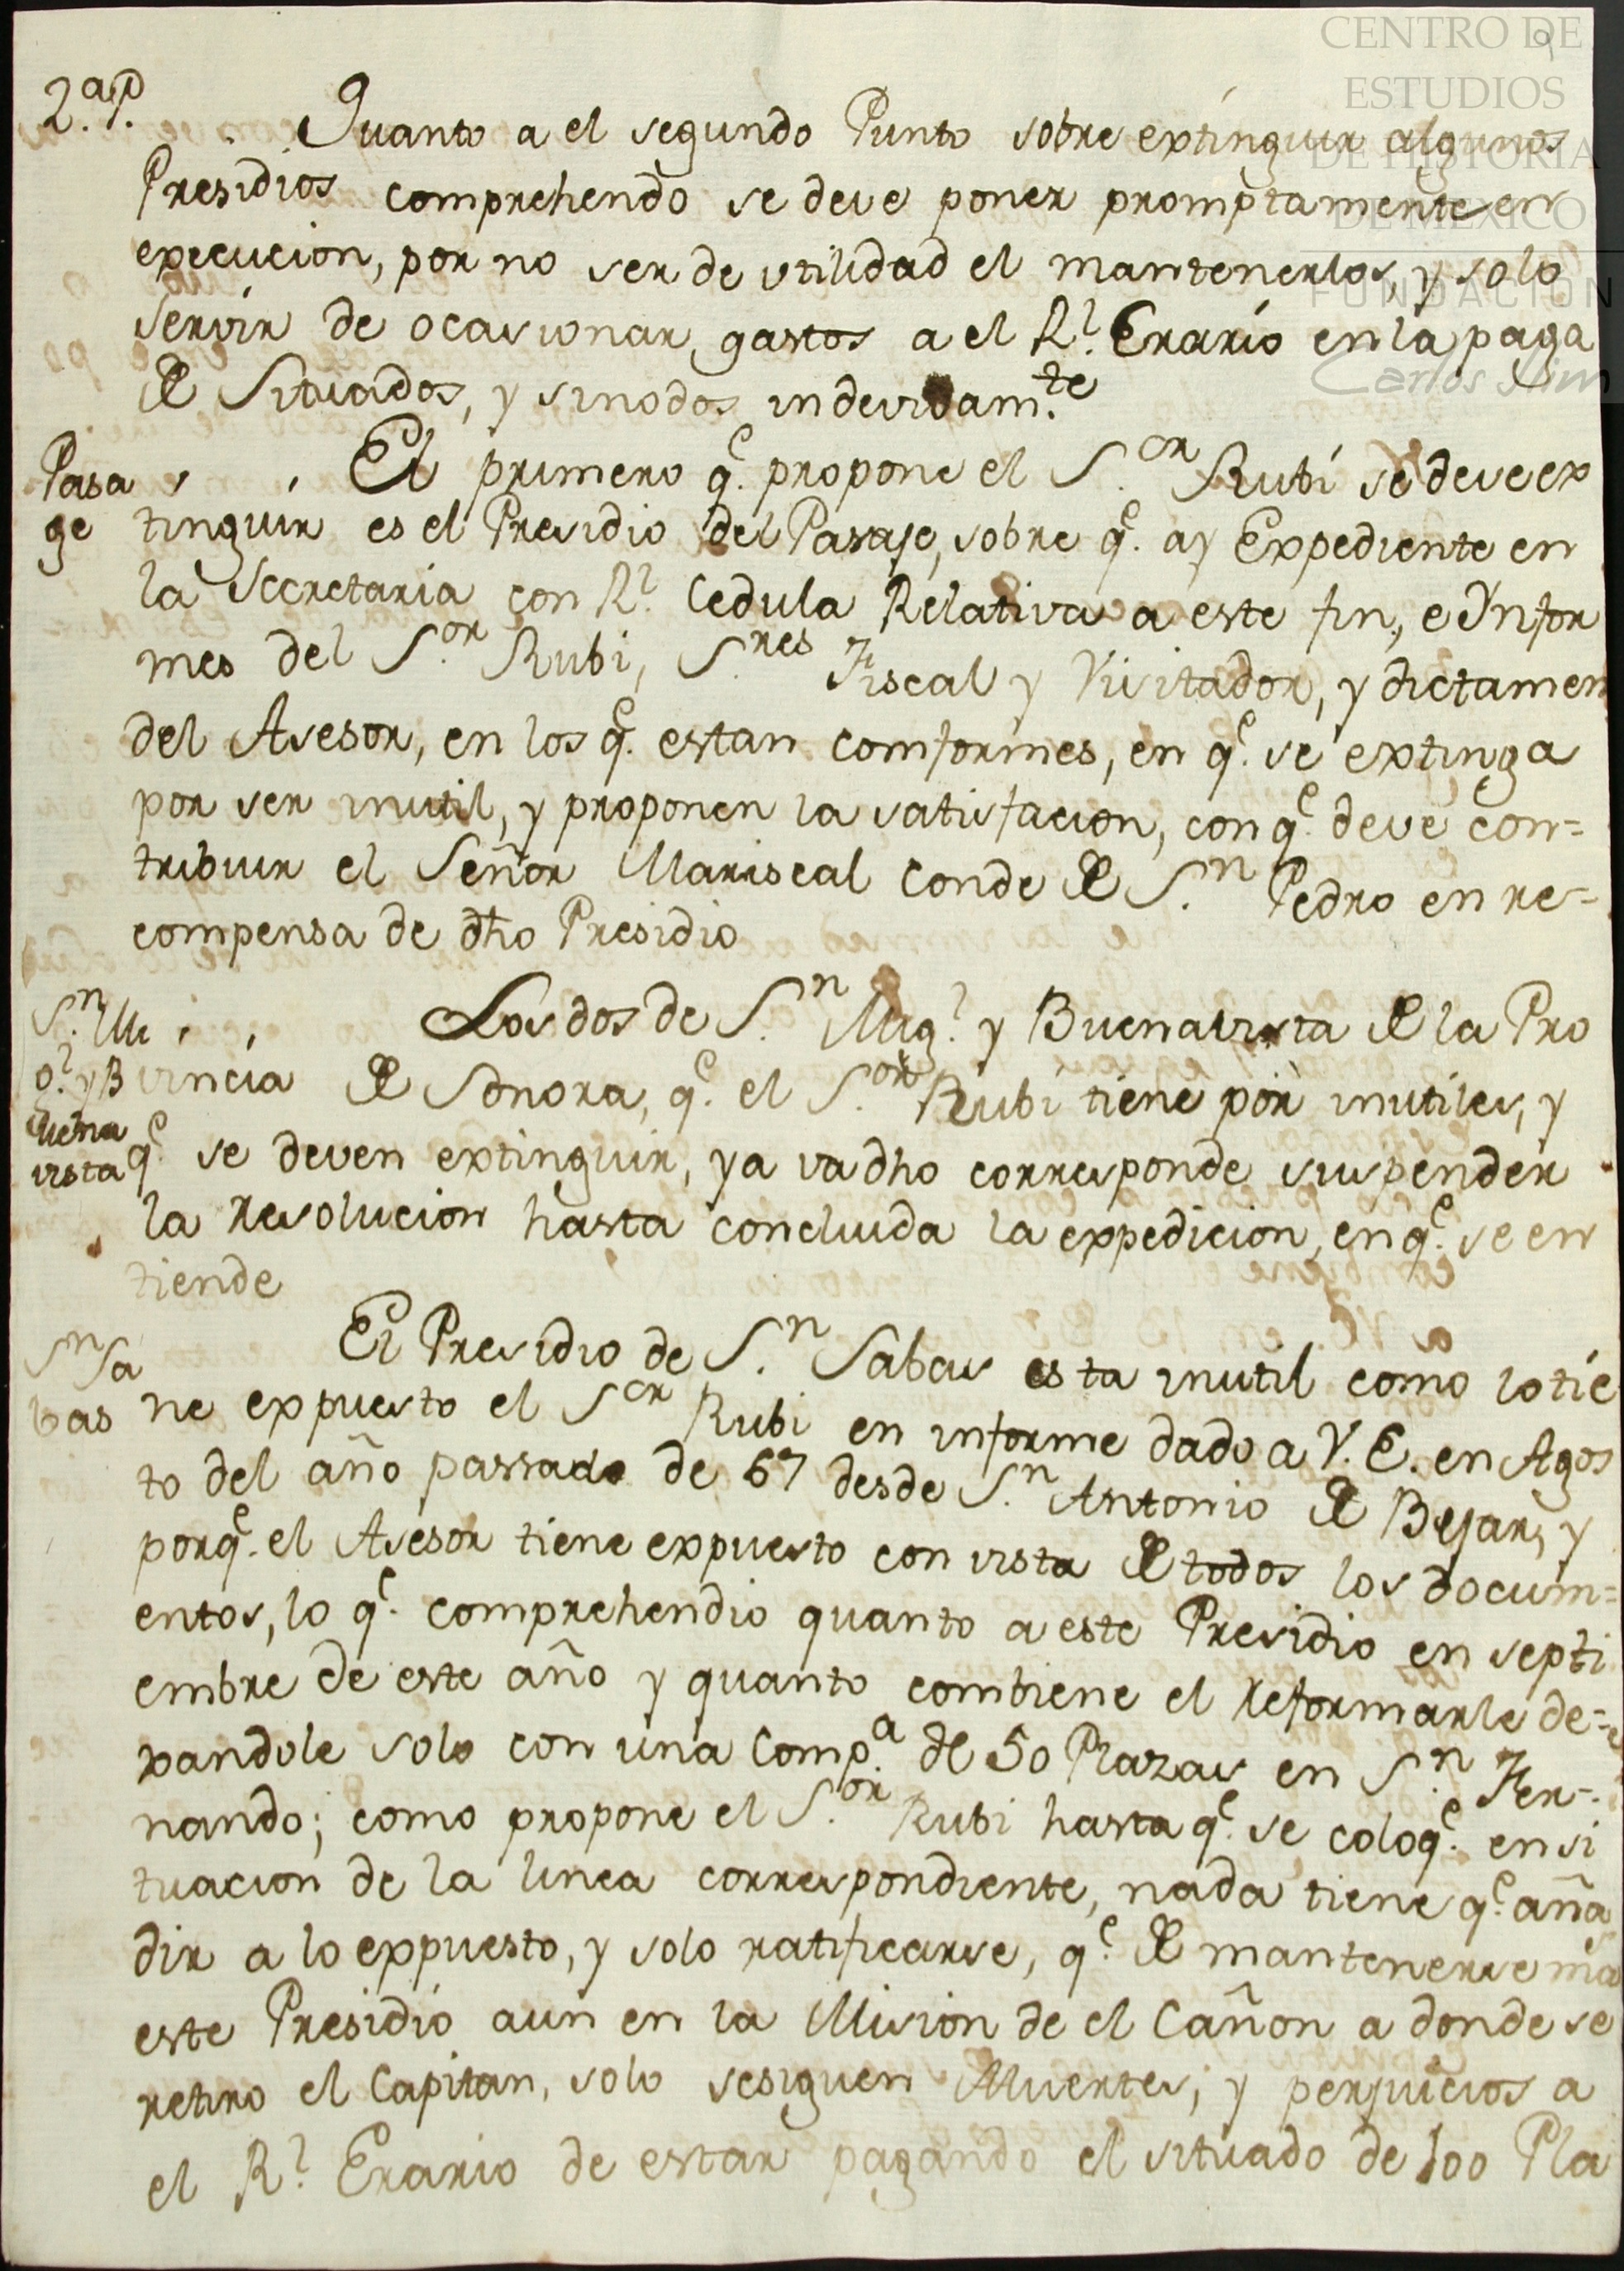 CENTRO DE
ESTUDIOS
DE HISTORIA
DE MEXICO
FUNDACIÓN
Carlos Slim
9
2.ª P.
Quanto a el segundo Punto sobre extinguir algunos
Presidios comprehendo se deve poner promptamente en
execucion, por no ser de vtilidad el mantenerlos, y solo
servir de ocasionar gastos a el R.l Erario en la paga
de Situados, y sinodos indevidam.te
Pasa
ge
El primero q.e propone el S.or Rubi se deve ex
tinguir es el Presidio del Pasaje, sobre q.e ay Expediente en
la Secretaria con R.l Cedula Relativa a este fin, e Ynfor
mes del S.or Rubi, S.res Fiscal y Visitador, y dictamen
del Asesor, en los q.e estan comformes, en q.e se extinga
por ser inutil, y proponen la satisfacion, con q.e deve con=
tribuir el Señor Mariscal Conde de S.n Pedro en re-
compensa de dho Presidio
S.n Mi
g.l y B
uena
vista
Los dos de S.n Mig.l y Buenavista de la Pro
vincia de Sonora, q.e el S.or Rubi tiene por inutiles, y
q.e se deven extinguir, ya va dho corresponde suspender
la resolucion hasta concluida la expedicion, en q.e se en
tiende
S.n Sa
bas
El Presidio de S.n Sabas esta inutil como lo tie
ne expuesto el S.or Rubi en informe dado a V. E. en Agos
to del año passado de 67 desde S.n Antonio de Bejar, y
porq.e el Asesor tiene expuesto con vista de todos los docum=
entos, lo q.e comprehendio quanto a este Presidio en septi
embre de este año y quanto combiene el reformarle de=
xandole solo con una Comp.a de 50 Plazas en S.n Fer-
nando; como propone el S.or Rubi hasta q.e se coloq.e en si
tuacion de la linea correspondiente, nada tiene q.e aña
dir a lo expuesto, y solo ratificarse, q.e de mantenerse ma
este Presidio aun en la Mision de el Cañon a donde se
retiro el Capitan, solo se siguen Muertes, y perjuicios a
el R.l Erario de estar pagando el situado de 100 Pla